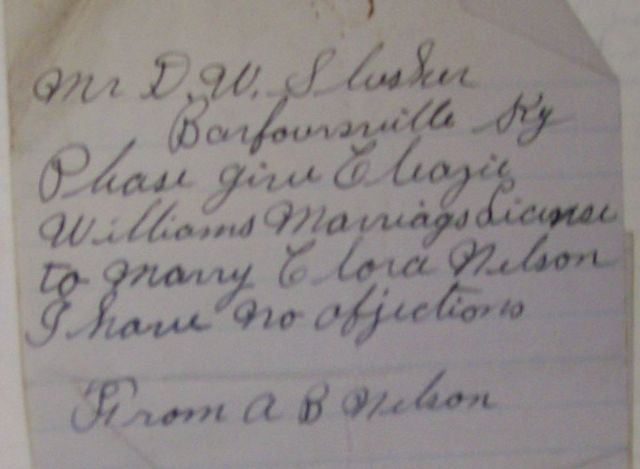 Mr D. W. Slusher
Barfoursville Ky
Please give Cleazie
Williams Marriags License
to marry Clora Nelson
I have no objections
From A B Nelson